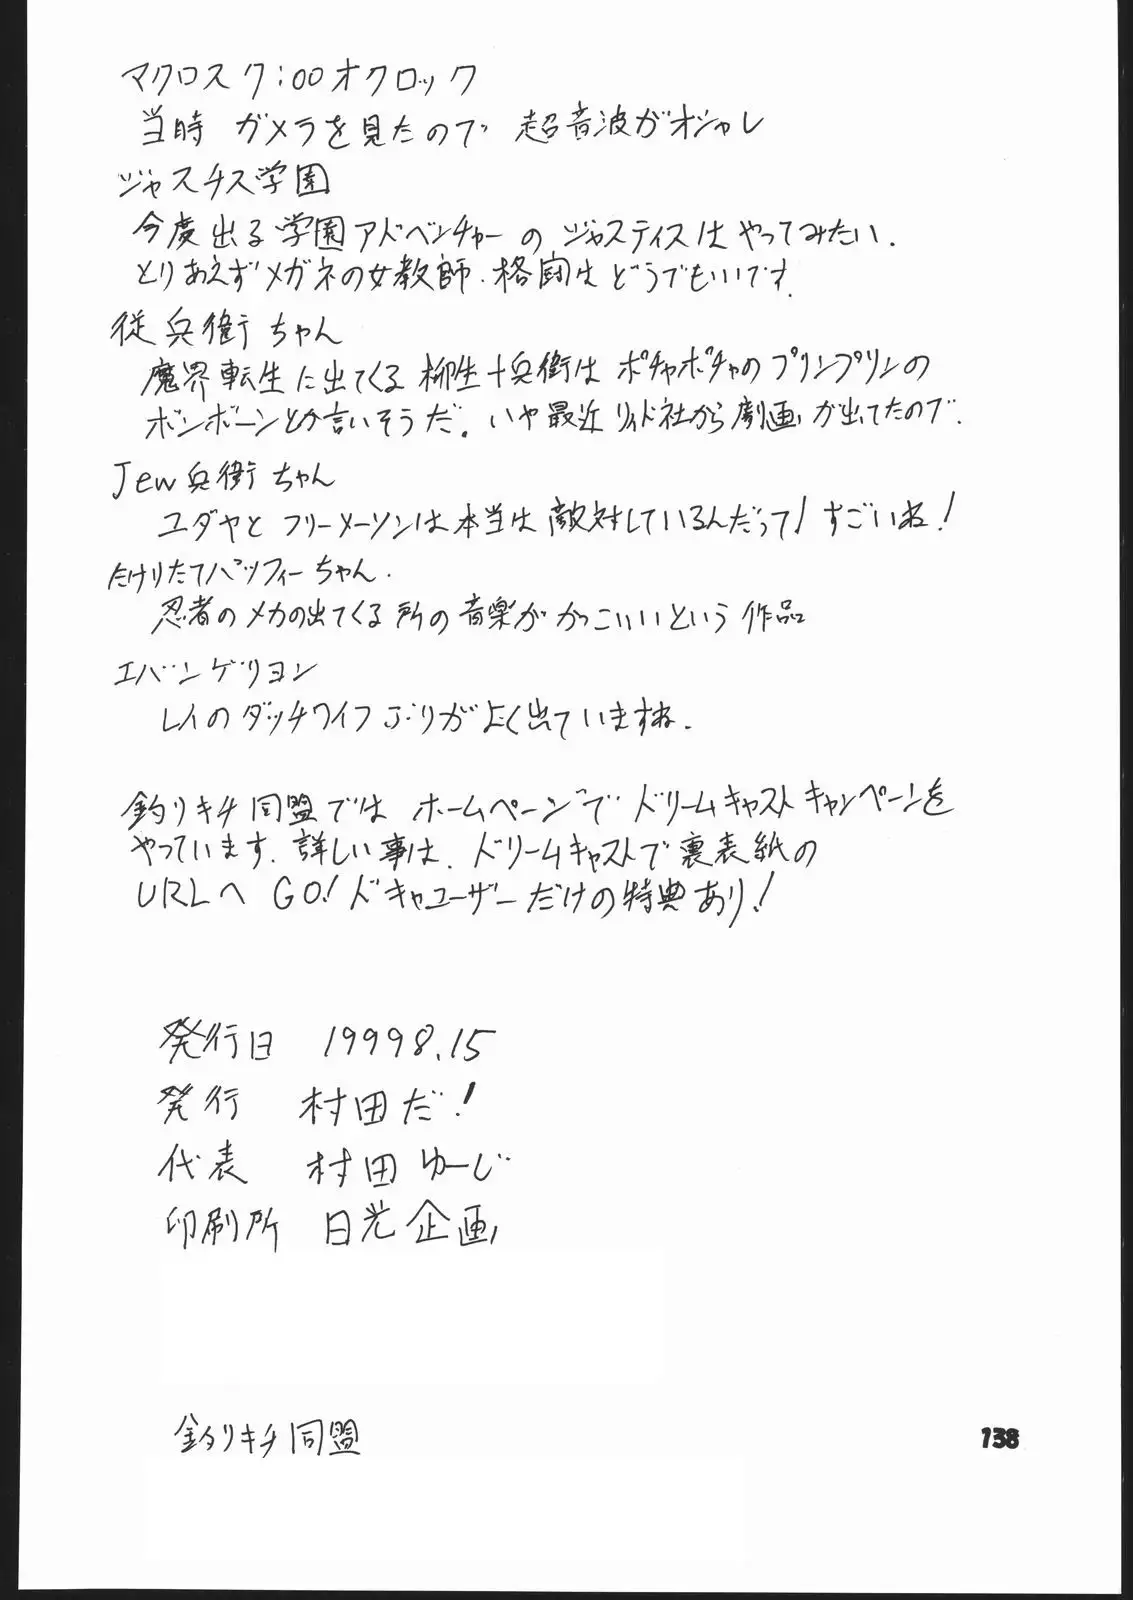 マクロスク:00オクロック
当時 ガメラを見たので 超音波がオシャレ
ジャスチス学園
今度出る学園アドベンチャーの ジャスティスは やってみたい.
とりあえずメガネの女教師.格闘はどうでもいいです.
従兵衛ちゃん
魔界転生に出てくる 柳生十兵衛は ポチャポチャのプリンプリンの
ボンボーンとか言いそうだ。いや最近リイド社から劇画が出てたので.
Jew兵衛ちゃん
ユダヤと フリーメーソンは本当は敵対しているんだって!すごいね!
たけりたてパッフィーちゃん.
忍者のメカの出てくる所の音楽が かっこいいという作品
エバンゲリヨン
レイのダッチワイフぶりがよく出ていますね.
釣りキチ同盟では ホームページで ドリームキャストキャンペーンを
やっています.詳しい事は.ドリームキャストで裏表紙の
URLへ GO!ドキャユーザーだけの特典あり!
発行日 19998.15
発行 村田だ!
代表 村田ゆーじ
印刷所 日光企画
釣りキチ同盟
138